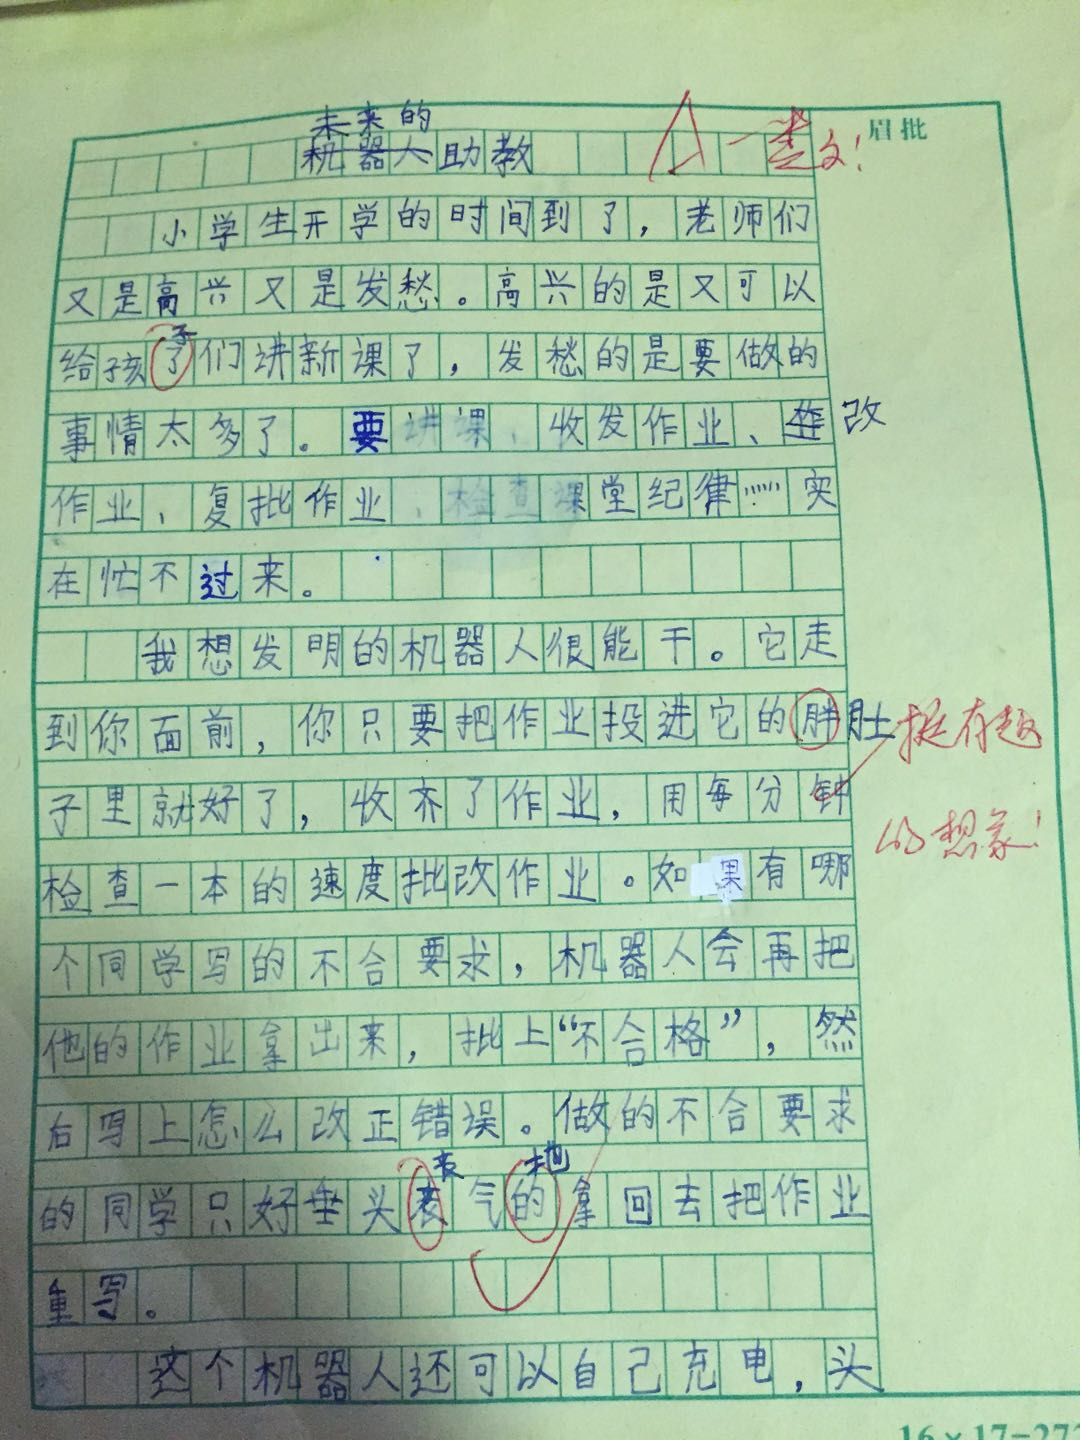 未来的
机器人助教
A 一类文！
眉批
小学生开学的时间到了，老师们
又是高兴又是发愁。高兴的是又可以
子
给孩了们讲新课了，发愁的是要做的
事情太多了。要讲课、收发作业、改
作业、复批作业、检查课堂纪律……实
在忙不过来。
我想发明的机器人很能干。它走
到你面前，你只要把作业投进它的胖肚
挺有趣
子里就好了，收齐了作业，用每分钟
的想象！
检查一本的速度批改作业。如果有哪
个同学写的不合要求，机器人会再把
他的作业拿出来，批上“不合格”，然
后写上怎么改正错误。做的不合要求
丧 地
的同学只好垂头气的拿回去把作业
重写。
这个机器人还可以自己充电，头
16×17=272